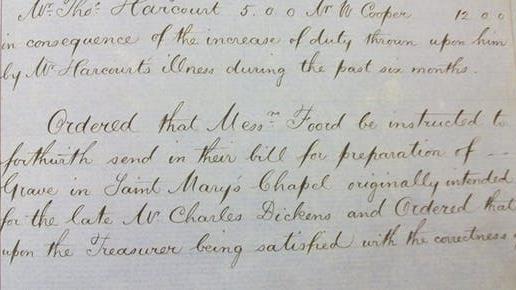 Mr. Thos. Harcourt 5. 0. 0 Mr W Cooper 12 0 0
in consequence of the increase of duty thrown upon him
by Mr Harcourt's illness during the past six months.
Ordered that Messrs. Foord be instructed to
forthwith send in their bill for preparation of —
Grave in Saint Mary's Chapel originally intended
for the late Mr Charles Dickens and Ordered that
upon the Treasurer being satisfied with the correctness